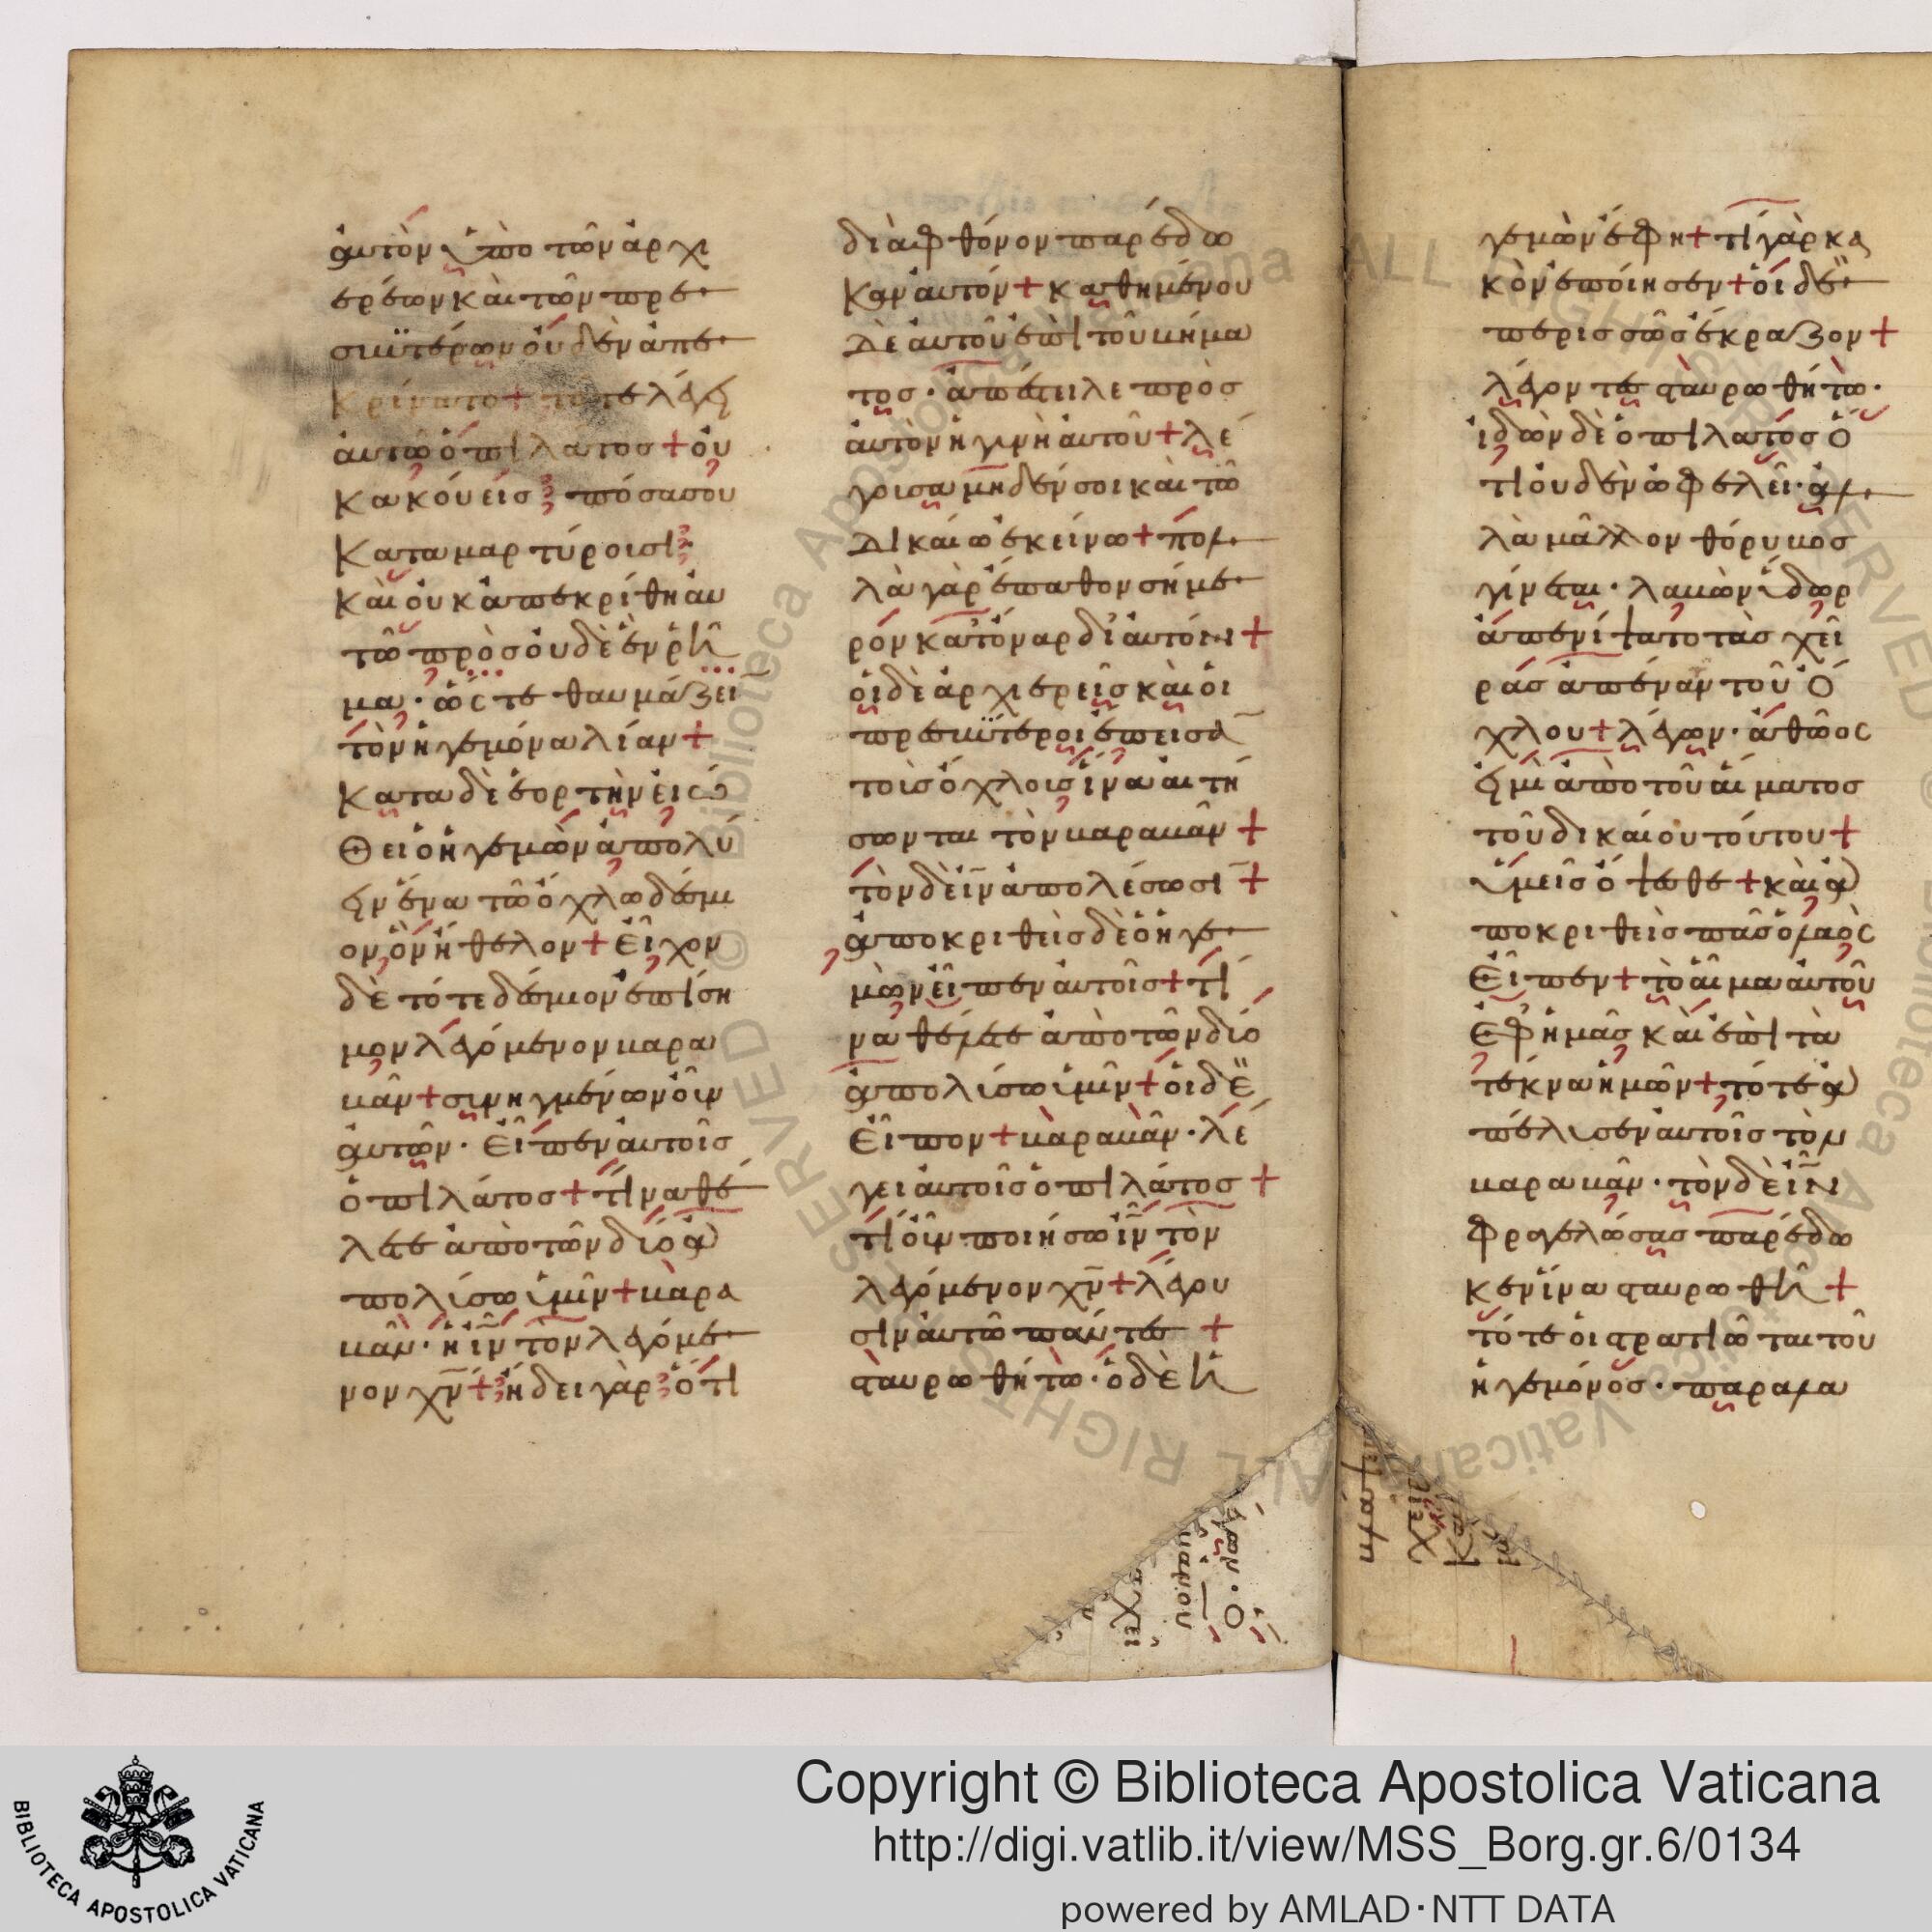 αυτὸν ὑπὸ τῶν ἀρχι
ερέων καὶ τῶν πρε
σβϋτέρων οὐδὲν ἀπε
κρίνατο + τότε λέγει
αὐτῶ ὁ πιλάτος + οὐ
κ ἀκούεις πόσα σου
καταμαρτύροισι
καὶ οὐκ ἀπεκρίθη αυ
τῶ πρὸς οὐδὲ ἐν ρῆ
μα · ὡς τε θαυμάζει
τὸν ἡγεμόνα λίαν +
κατα δὲ ἑορτὴν εἰώ
θει ὁ ἡγεμὼν ἀπολύ
ειν ἕνα τῶ ὄχλω δέσμι
ον ὃν ἤθελον + εἶχον
δὲ τότε δέσμιον ἐπίση
μον λεγόμενον βαρα
βᾶν + σινηγμένων οὖν
αυτῶν · εἶπεν αὐτοῖς
ὁ πιλάτος + τίνα θέ
λετε ἀπὸ τῶν διό ἀ
πολίσω ὑμῖν + βαρα
βᾶν · ἢ ἰν τὸν λεγόμε
νον χν + ἤδει γὰρ ὅτι
διὰ φθόνον παρέδω
καν αυτόν + καθημένου
δὲ αυτοῦ ἐπὶ τοῦ βήμα
τος · ἀπέστειλε πρὸς
αὐτὸν ἡ γυνὴ αὐτοῦ + λέ
γουσα μηδέν σοι καὶ τῶ
δικαίω ἐκείνω + πολ
λὰ γὰρ ἔπαθον σήμε
ρον κατόναρ δι αυτόν +
οἱ δὲ ἀρχιερεῖς καὶ οἱ
πρεσβϋτεροι ἔπεισα
τοὶς ὄχλοις ἵνα αἰτή
σωνται τὸν βαραβᾶν +
τὸν δὲ ἰν ἀπολέσωσι +
ἀποκριθεὶς δὲ ὁ ἡγε
μὼν εἶπεν αὐτοῖς + τί
να θέλετε ἀπὸ τῶν διό
ἀπολίσω ὑμῖν + οἱ δὲ
εἶπον + βαραβᾶν · λέ
γει αὐτοῖς ὁ πιλάτος +
τί οὖν ποιήσω ἰν τὸν
λεγόμενον χν + λέγου
σιν αὐτῶ παντες +
σταυρωθήτω · ὁ δὲ ἡ
γεμὼν ἔφη + τί γὰρ κα
κὸν ἐποίησεν + οἱ δὲ
περισσῶς ἔκραζον +
λέγοντες σταυρωθήτω ·
ἰδὼν δὲ ὁ πιλατος ὅ
τι οὐδὲν ὠφελεῖ · ἀλ
λὰ μᾶλλον θόρυβος
γίνεται · λαβὼν ὕδωρ
ἀπενίψατο τὰς χεῖ
ρας ἀπέναντι τοῦ ὄ
χλου + λέγων · ἀθῶος
εἰμὶ ἀπὸ τοῦ αἵματος
τοῦ δικαίου τούτου +
ὑμεῖς ὄψεσθε + καὶ ἀ
ποκριθεὶς πᾶς ὁ λαὸς
εἶπεν + τὸ αἷμα αὐτοῦ
ἐφ ἡμᾶς καὶ ἐπὶ τὰ
τέκνα ἡμῶν + τότε ἀ
πέλυσεν αὐτοῖς τὸν
βαραβᾶν · τὸν δὲ ἰν
φραγελώσας παρέδω
κεν ἵνα σταυρωθῆ +
τότε οἱ στρατιῶται τοῦ
ἡγεμόνος · παραλα
Copyright © Biblioteca Apostolica Vaticana
http://digi.vatlib.it/view/MSS_Borg.gr.6/0134
powered by AMLAD·NTT DATA
BIBLIOTECA APOSTOLICA VATICANA